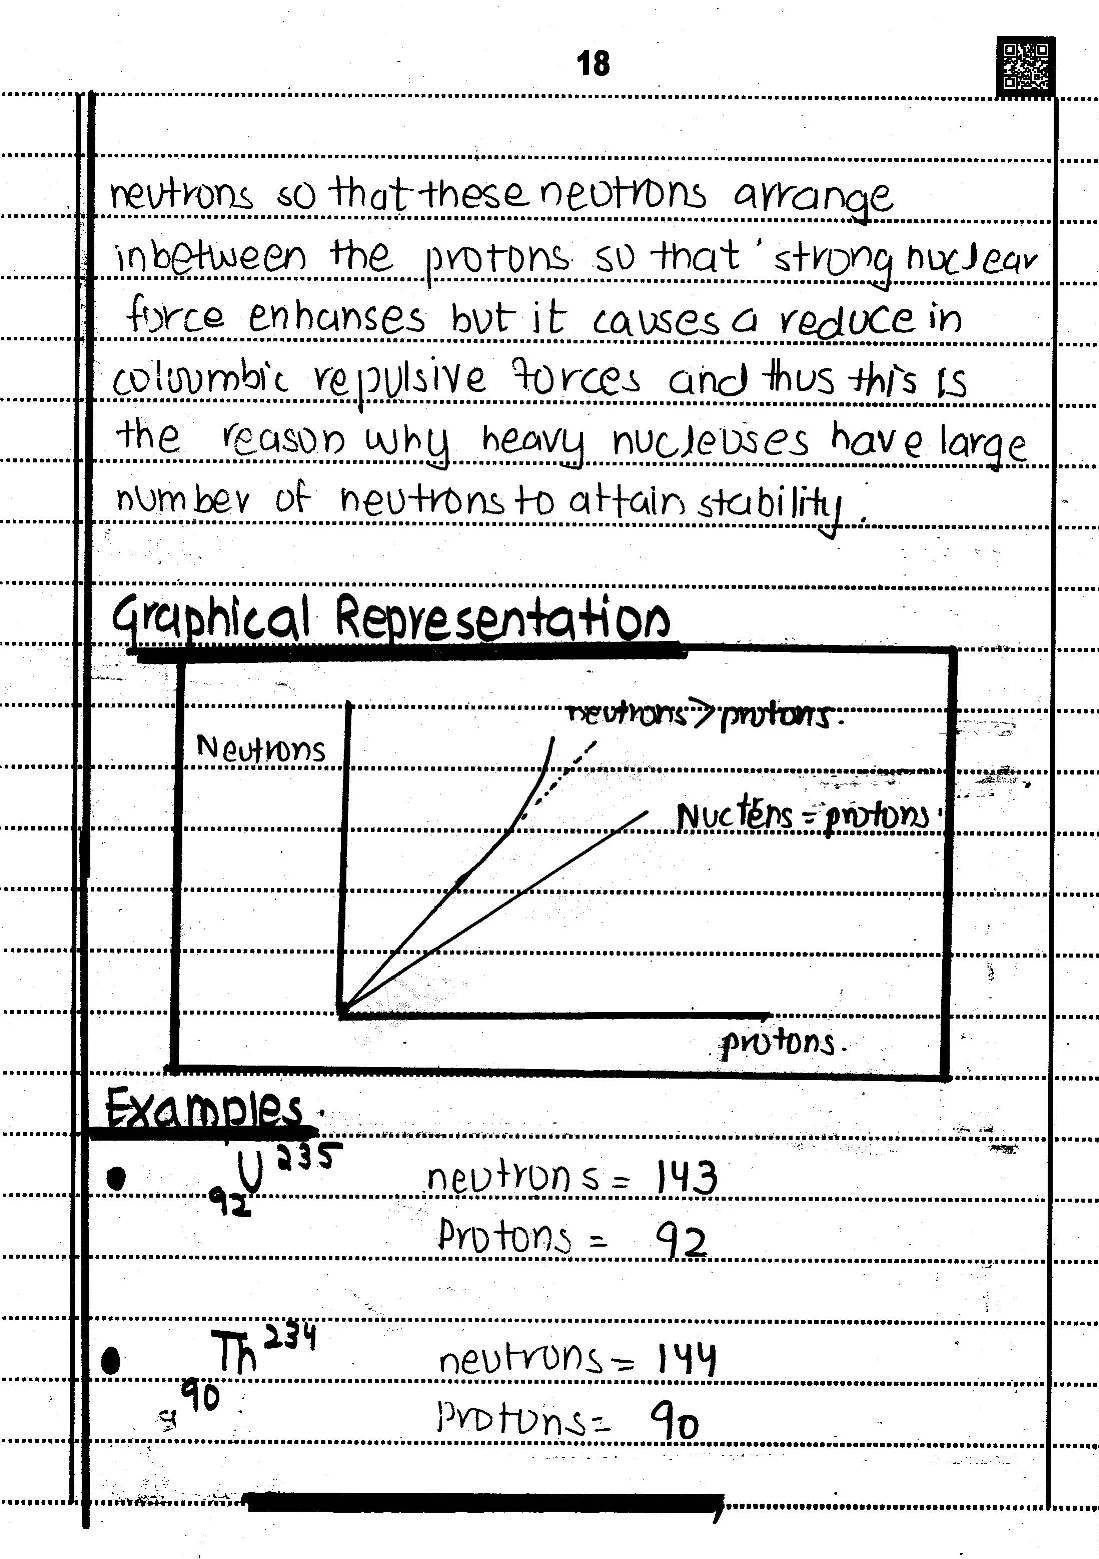 18
neutrons so that these neutrons arrange
inbetween the protons so that strong nuclear
force enhanses but it causes a reduce in
coloumbic repulsive forces and thus this is
the reason why heavy nucleuses have large
number of neutrons to attain stability.
Graphical Representation
neutrons > protons.
Neutrons
= protons.
protons.
Examples.
92 U 235 neutrons = 143
Protons = 92
90 Th 234 neutrons = 144
Protons = 90